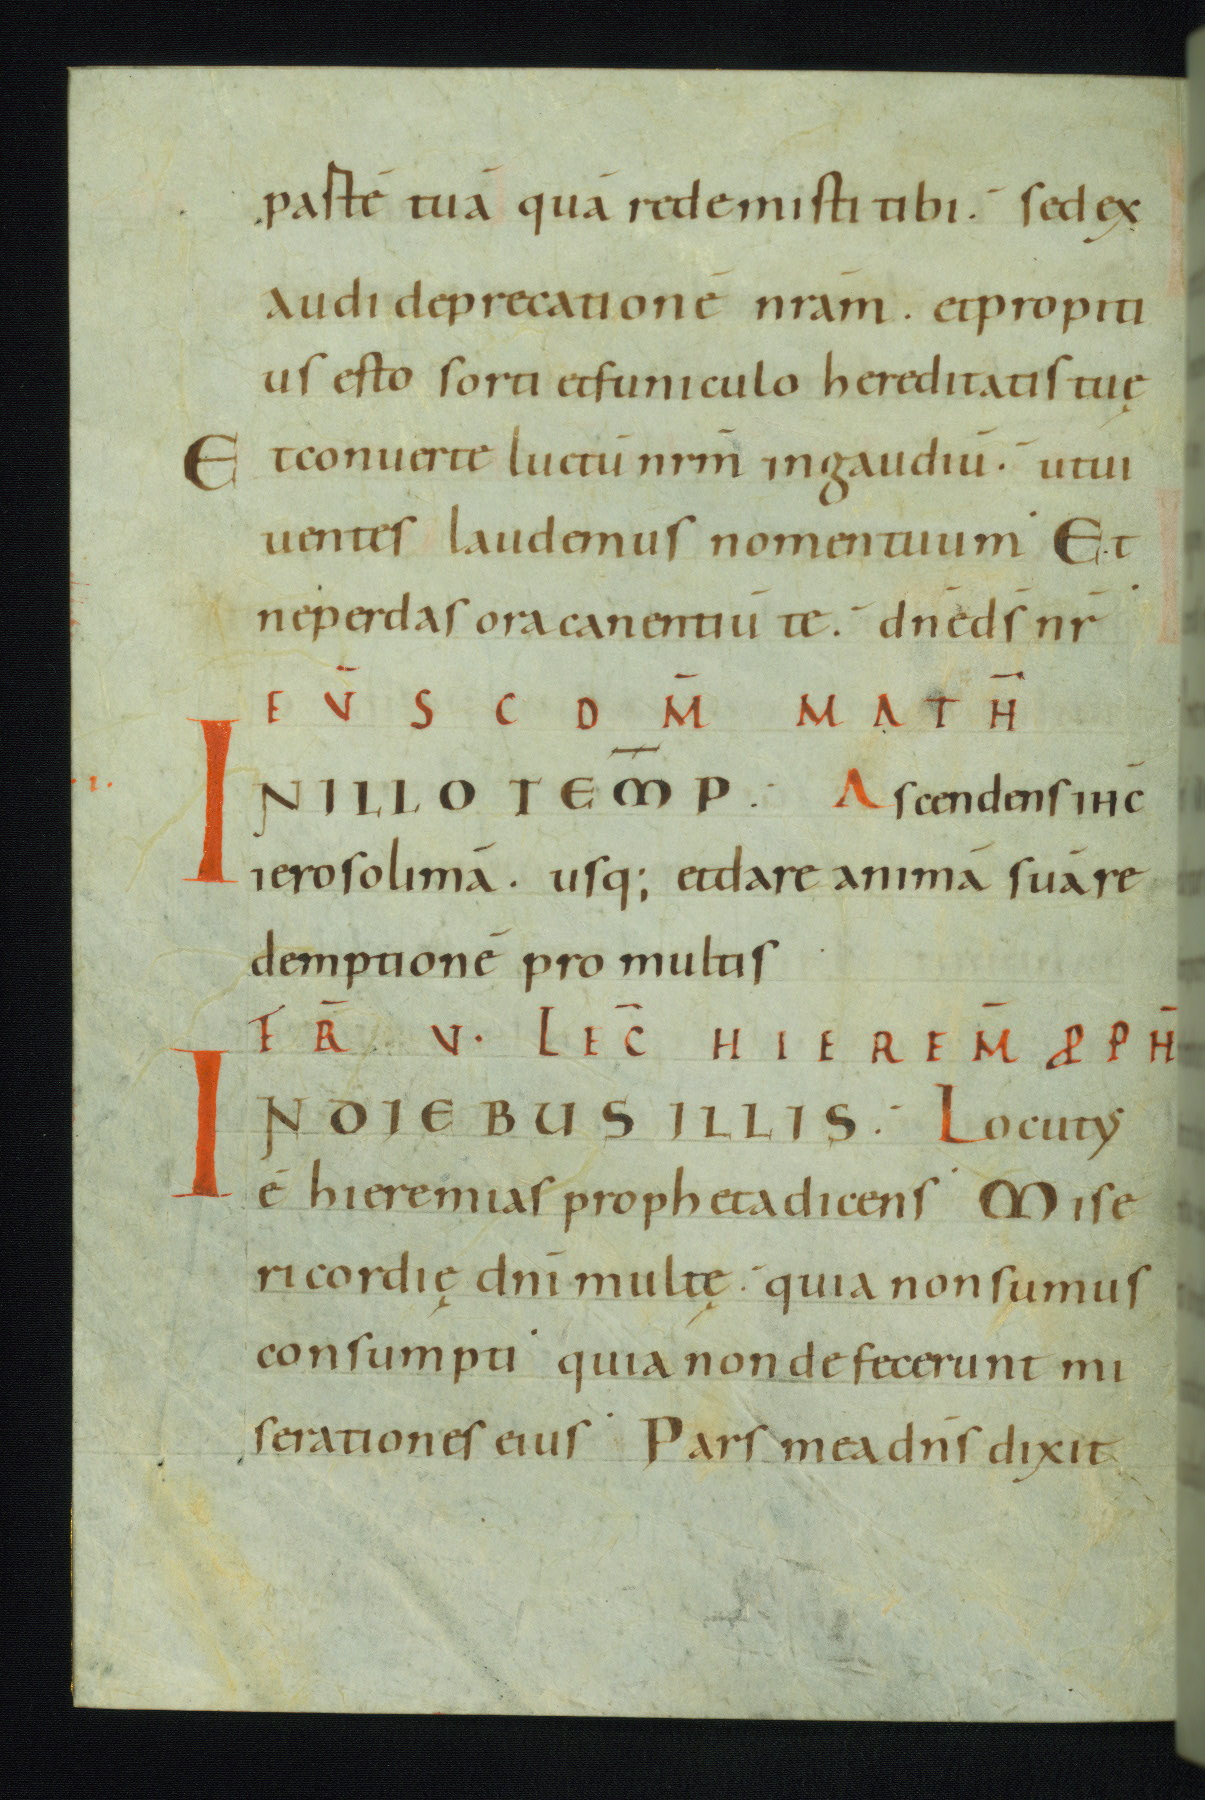 partē tuā quā redemisti tibi. sed ex
audi deprecationē nrām. et propiti
us esto sorti et funiculo hereditatis tuę
Et conuerte luctū nrm̄ in gaudiū. ut ui
uentes laudemus nomen tuum Et
ne perdas ora canentiū te. dn̄e ds̄ nr̄
EVS̄ SCDM̄ MATH̄
IN ILLO TEM̄P. Ascendens ihc̄
ierosolimā. usq; et dare animā suā re
demptionē pro multis
FR̄ V. LEC̄ HIEREM̄ & PH̄
IN DIEBUS ILLIS. Locutus
ē hieremias propheta dicens Mise
ricordię dnī multę. quia non sumus
consumpti quia non defecerunt mi
serationes eius Pars mea dn̄s dixit